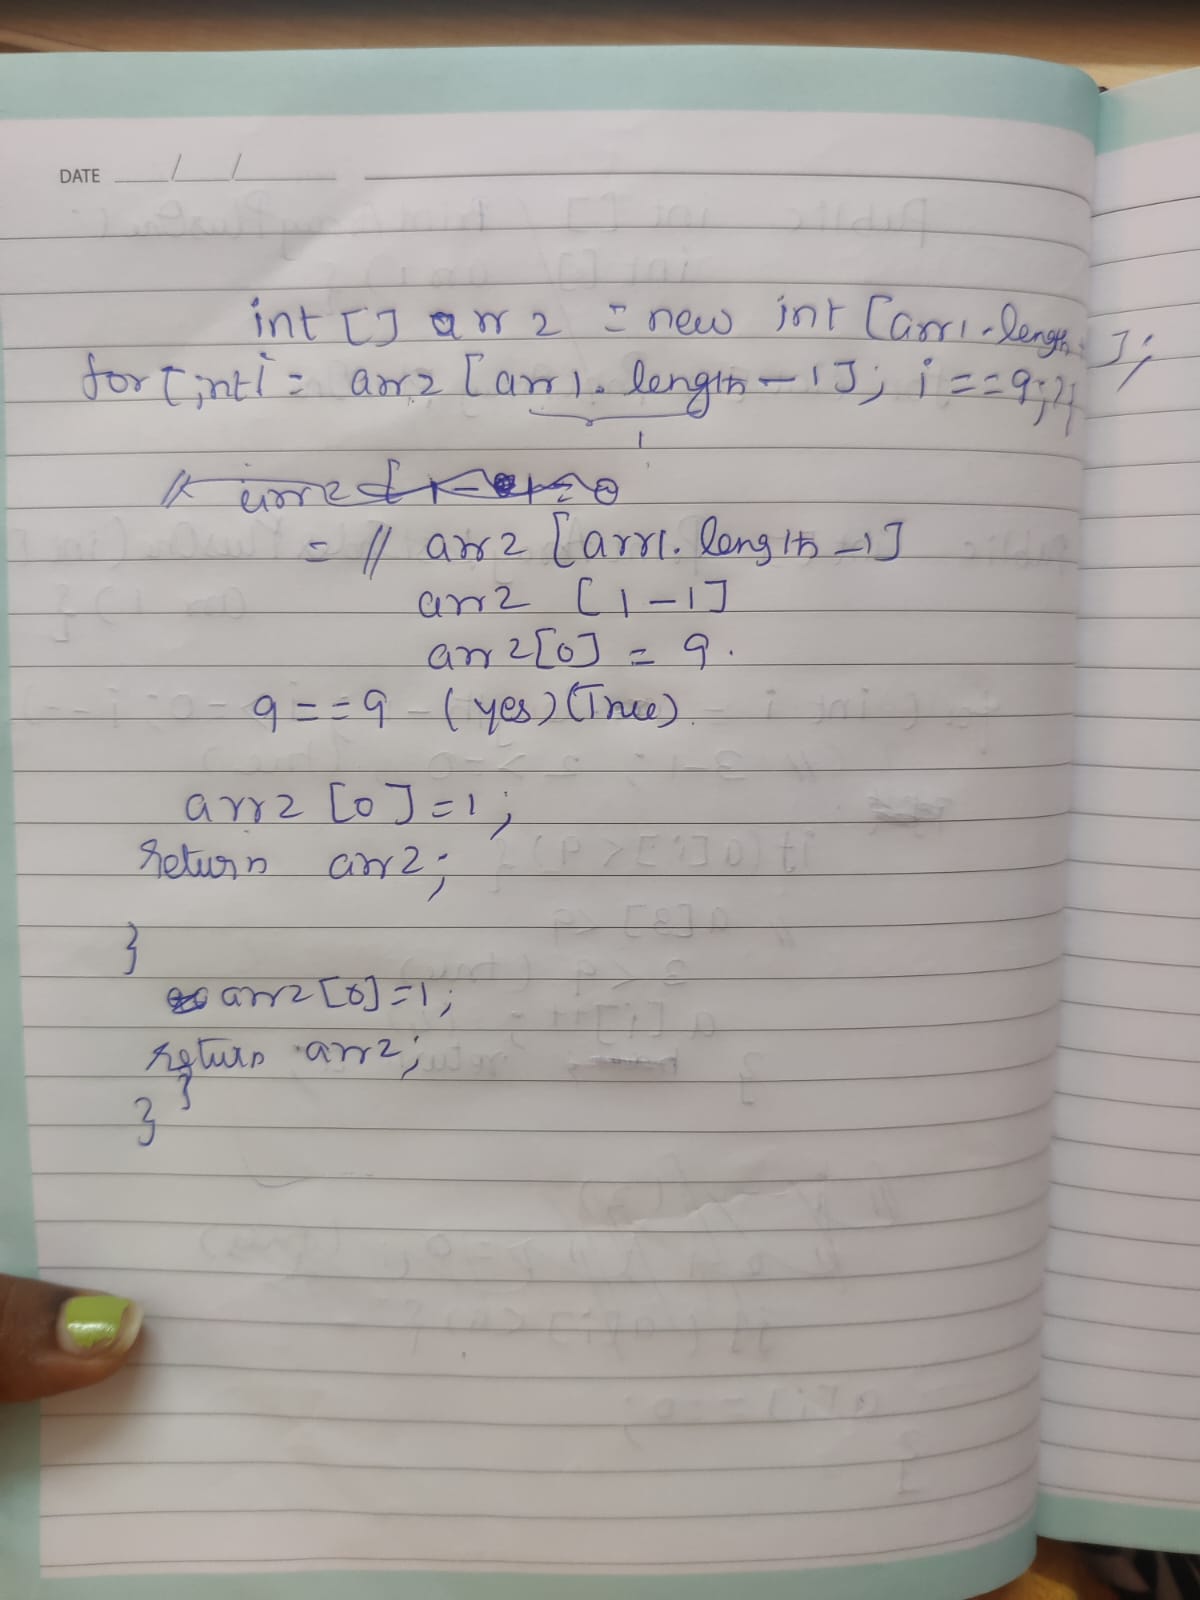 DATE / /
int [] arr2 = new int [arr1.length];
for [int i = arr2 [arr1.length-1]; i==9;){
1
= // arr2 [arr1.length-1]
arr2 [1-1]
arr2[0] = 9.
9==9 - (yes)(True).
arr2 [0]=1;
return arr2;
}
arr2[0]=1;
return arr2;
}
}